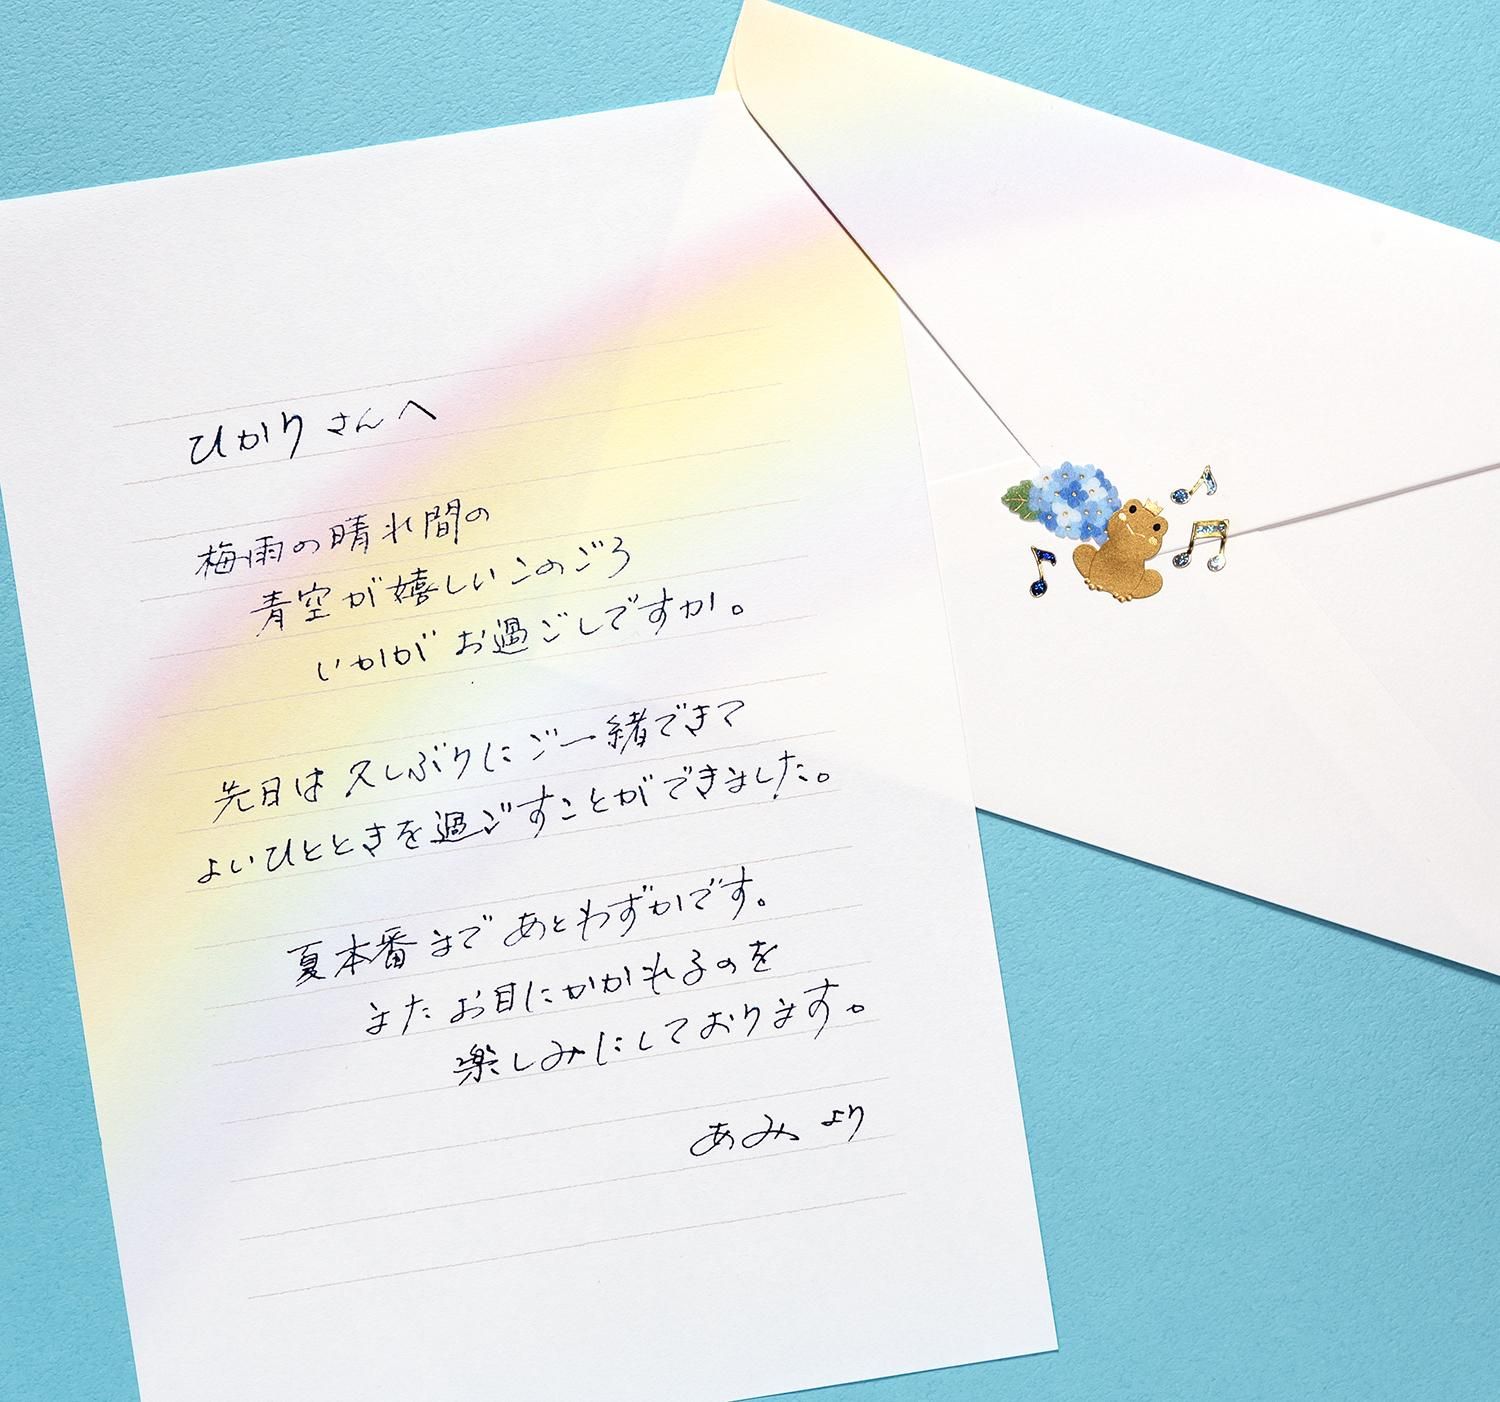 ひかりさんへ
梅雨の晴れ間の
青空が嬉しいこのごろ
いかがお過ごしですか。
先日は久しぶりにご一緒できて
よいひとときを過ごすことができました。
夏本番まであとわずかです。
またお目にかかれるのを
楽しみにしております。
あみより